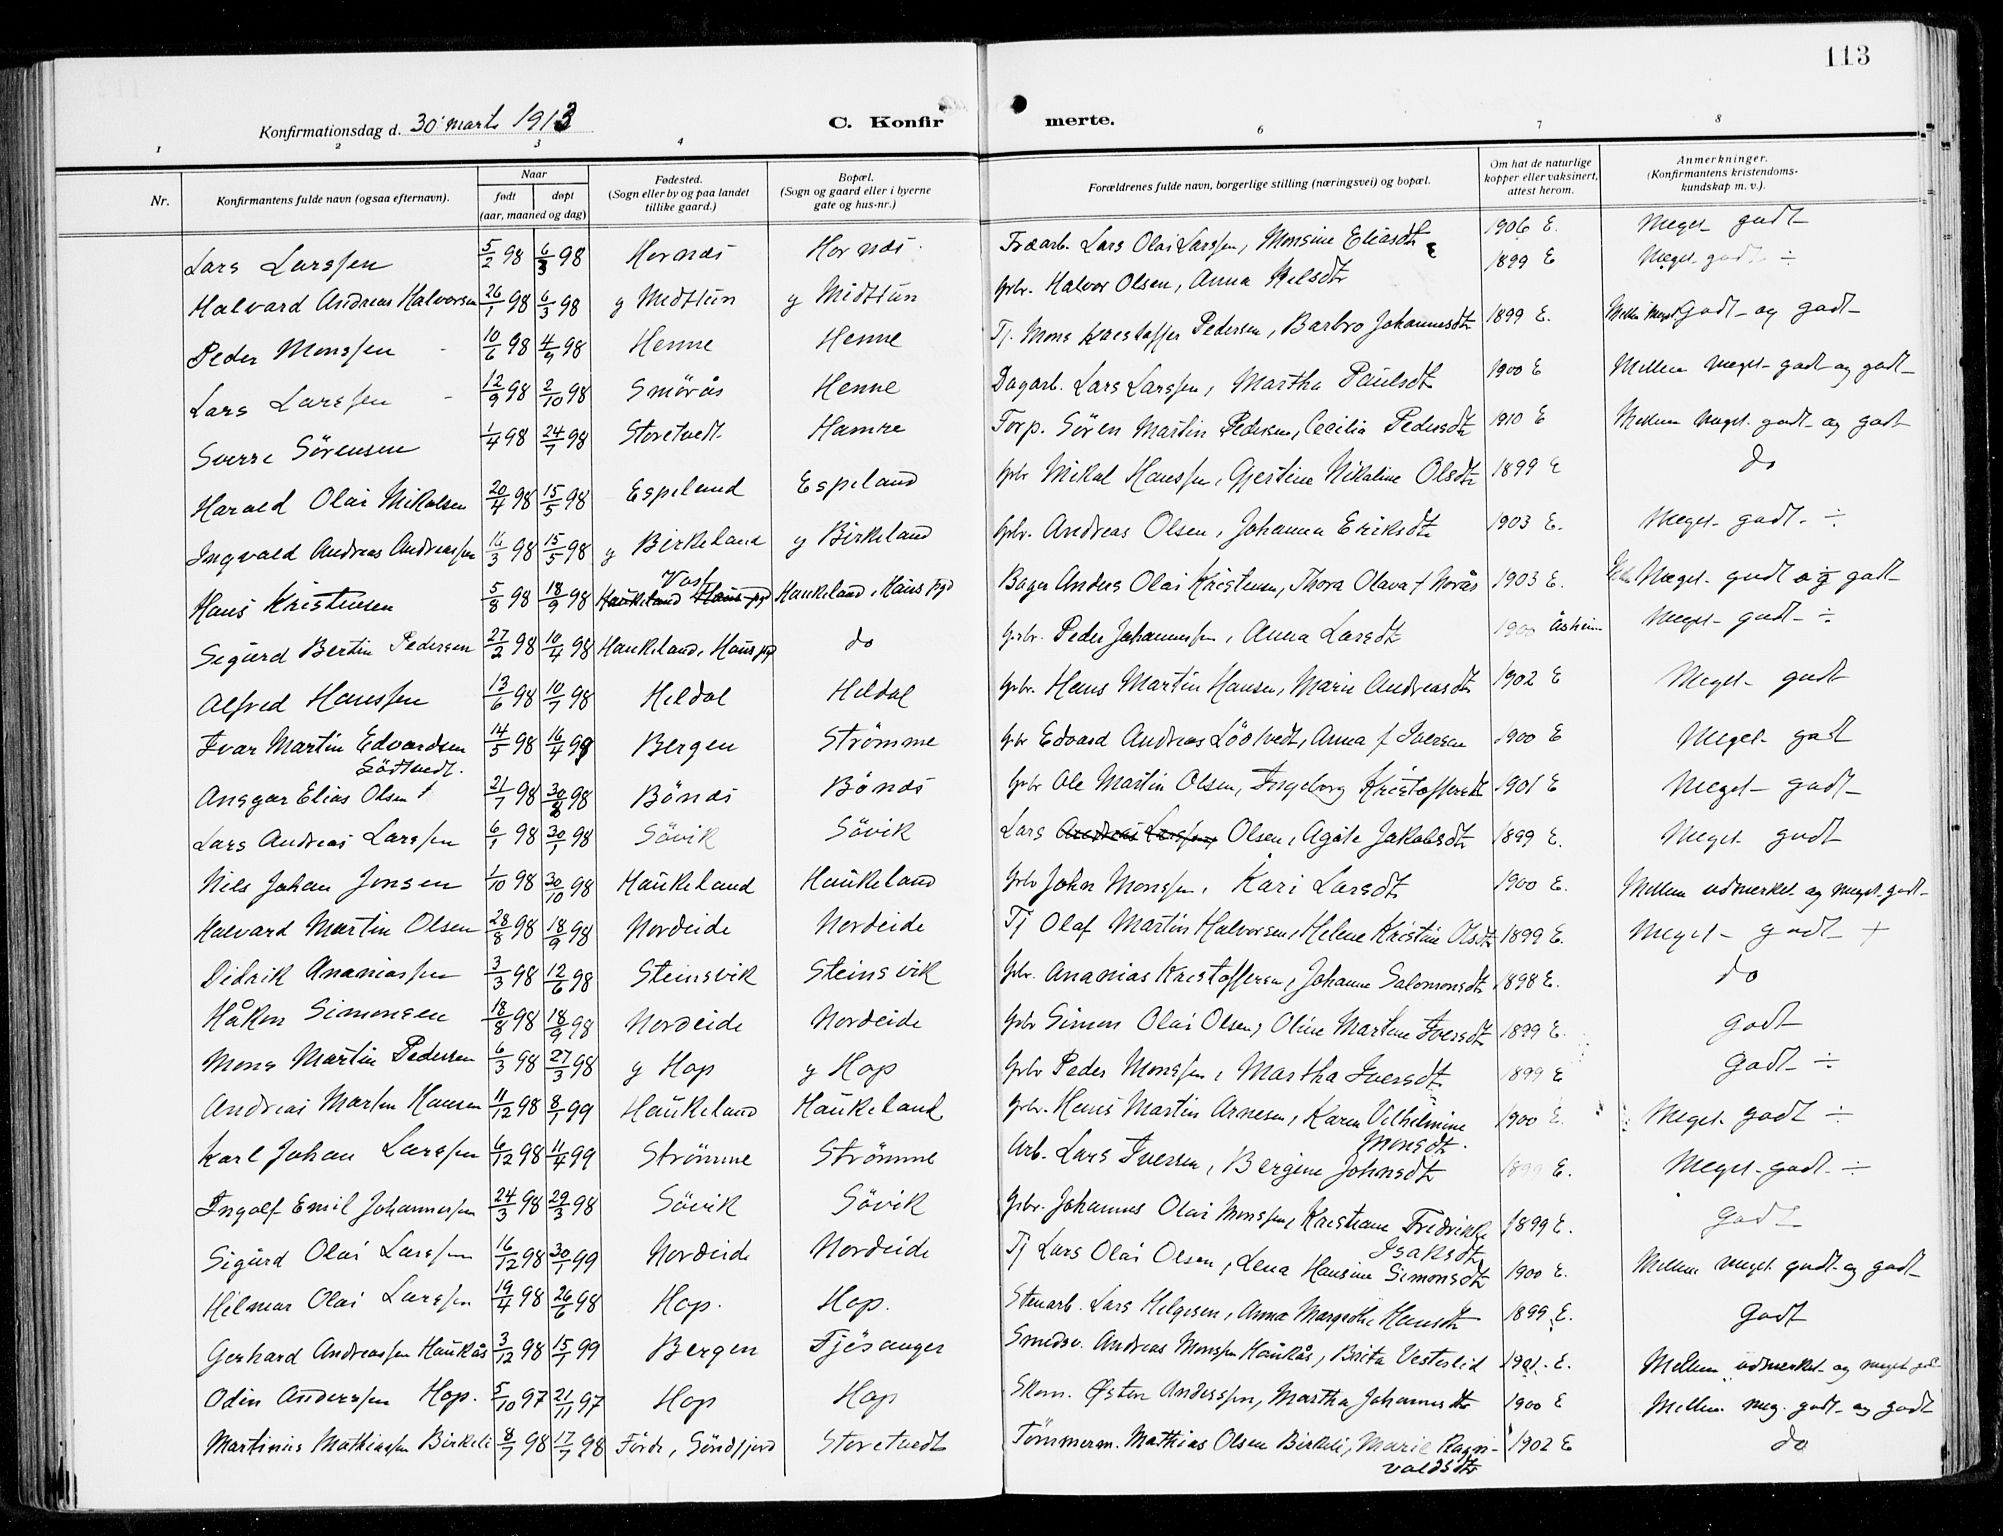 113
Konfirmationsdag d. 30' marts 1913
C. Konfirmerte.
1 2 3 4 6 7 8
Nr.
Konfirmantens fulde navn (ogsaa efternavn).
Naar
født døpt
(aar, maaned og dag)
Fødested.
(Sogn eller by og paa landet
tillike gaard.)
Bopæl.
(Sogn og gaard eller i byerne
gate og hus-nr.)
Forældrenes fulde navn, borgerlige stilling (næringsvei) og bopæl.
Om hat de naturlige
kopper eller vaksinert,
attest herom.
Anmerkninger.
(Konfirmantens kristendoms-
kundskap m. v.).
Lars Larssen 5/2 98 6/3 98 Hornæs Hornæs Træarb. Lars Olai Larssen, Monsine Eliasdtr 1906 E. Meget godt
Halvard Andreas Halvorsen 26/1 98 6/3 98 y Midttun y Midttun Gbr. Halvor Olsen, Anna Nilsdtr 1899 E Meget godt ÷
Peder Monssen 10/6 98 4/9 98 Henne Henne Tj. Mons Kristoffer Pedersen, Barbro Johannesdtr 1899 E. Mellem Meget Godt og godt
Lars Larssen 12/9 98 2/10 98 Smörås Henne Dagarb. Lars Larssen, Martha Paulsdtr 1900 E Mellem meget godt og godt
Sverre Sörensen 1/4 98 24/7 98 Storetvedt Hamre Forp. Sören Martin Pedersen, Cecilia Pedersdtr 1910 E Mellem meget godt og godt
Harald Olai Mikalsen 20/4 98 15/5 98 Espeland Espeland Gbr Mikal Hanssen, Gjertine Nikoline Olsdtr 1899 E do
Ingvald Andreas Andreassen 16/3 98 15/5 98 y Birkeland y Birkeland Gbr. Andreas Olsen, Johanna Eriksdtr 1903 E. Meget godt ÷
Hans Kristensen 5/8 98 18/9 98 Haukeland Haus pgd Voss Haukeland, Haus pgd Bager Anders Olai Kristensen, Thora Olava f Norås 1903 E. Meget godt og godt
Sigurd Bertin Pedersen 27/2 98 10/4 98 Haukeland, Haus pgd do Gbr. Peder Johannessen, Anna Larsdtr 1900 Åsheim Meget godt ÷
Alfred Hanssen 13/6 98 10/7 98 Heldal Heldal Gbr. Hans Martin Hansen, Marie Andreasdtr 1902 E Meget godt
Ivar Martin Edvardsen
Lödtvedt. 14/5 98 16/4 99 Bergen Strømme Gbr Edvard Andreas Lödtvedt, Anna f Iversen 1900 E Meget godt
Ansgar Elias Olsen † 21/7 98 30/8 98 Bönæs Bönæs Gbr Ole Martin Olsen, Ingeborg Kristoffersdtr 1901 E Meget godt
Lars Andreas Larssen 6/1 98 30/1 98 Sövik Sövik Lars Andreas Larssen, Olsen, Agate Jakobsdtr 1899 E. Meget godt
Nils Johan Jonsen 1/10 98 30/10 98 Haukeland Haukeland Gbr John Monssen, Kari Larsdtr 1900 E. Mellem udmerket og meget godt
Halvard Martin Olsen 28/8 98 18/9 98 Nordeide Nordeide Tj Olaf Martin Halvorsen, Helene Kristine Olsdtr 1899 E. Meget godt +
Didrik Ananiassen 3/3 98 12/6 98 Steinsvik Steinsvik Gbr. Ananias Kristoffersen, Johanne Salomonsdtr 1898 E. do
Håkon Simonsen 18/8 98 18/9 98 Nordeide Nordeide Gbr Simon Olai Olsen, Oline Martine Iversdtr 1899 E. godt
Mons Martin Pedersen 6/3 98 27/3 98 y Hop y Hop Gbr Peder Monssen, Martha Iversdtr 1899 E Godt ÷
Andreas Marten Hansen 11/12 98 8/1 99 Haukeland Haukeland Gbr. Hans Martin Arnesen, Karen Vilhelmine
Monsdtr. 1900 E. Meget godt ÷
Karl Johan Larssen 6/12 98 11/4 99 Strömme Strömme Arb. Lars Iversen, Bergine Johnsdtr 1899 E. Meget godt ÷
Ingolf Emil Johannessen 24/3 98 29/3 98 Sövik Sövik Gbr. Johannes Olai Monssen, Kristiane Fredrikke
Isaksdtr 1899 E. Godt
Sigurd Olai Larssen 16/12 98 30/1 99 Nordeide Nordeide Tj Lars Olai Olsen, Lena Hansine Simonsdtr 1900 E. Mellem meget godt og godt
Hilmar Olai Larssen 19/4 98 26/6 98 Hop. Hop. Stenarb. Lars Helgesen, Anna Margrethe Hansdtr 1899 E. Godt
Gerhard Andreassen Haukås 3/12 98 15/1 99 Bergen Fjösanger Smedsv. Andreas Monssen Haukås, Brita Vesterlid 1901. E. Mellem udmerket og meget godt
Odin Anderssen Hop. 5/10 97 21/11 97 Hop Hop Skom. Østen Anderssen, Martha Johannesdtr 1900 E Mellem meg. godt og godt
Martinius Mathiassen Birkeli 8/7 98 17/7 98 Förde, Söndfjord Storetvedt Tömmerm. Mathias Olsen Birkeli, Marie Ragn-
valdsdtr 1902 E do